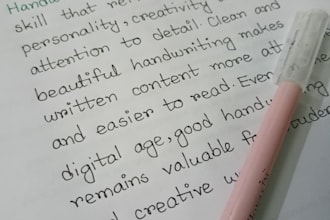 Handw
skill that
personality, creativity
attention to detail. Clean and
beautiful handwriting makes
written content more att
and easier to read. Even
digital age, good hand
remains valuable
creative